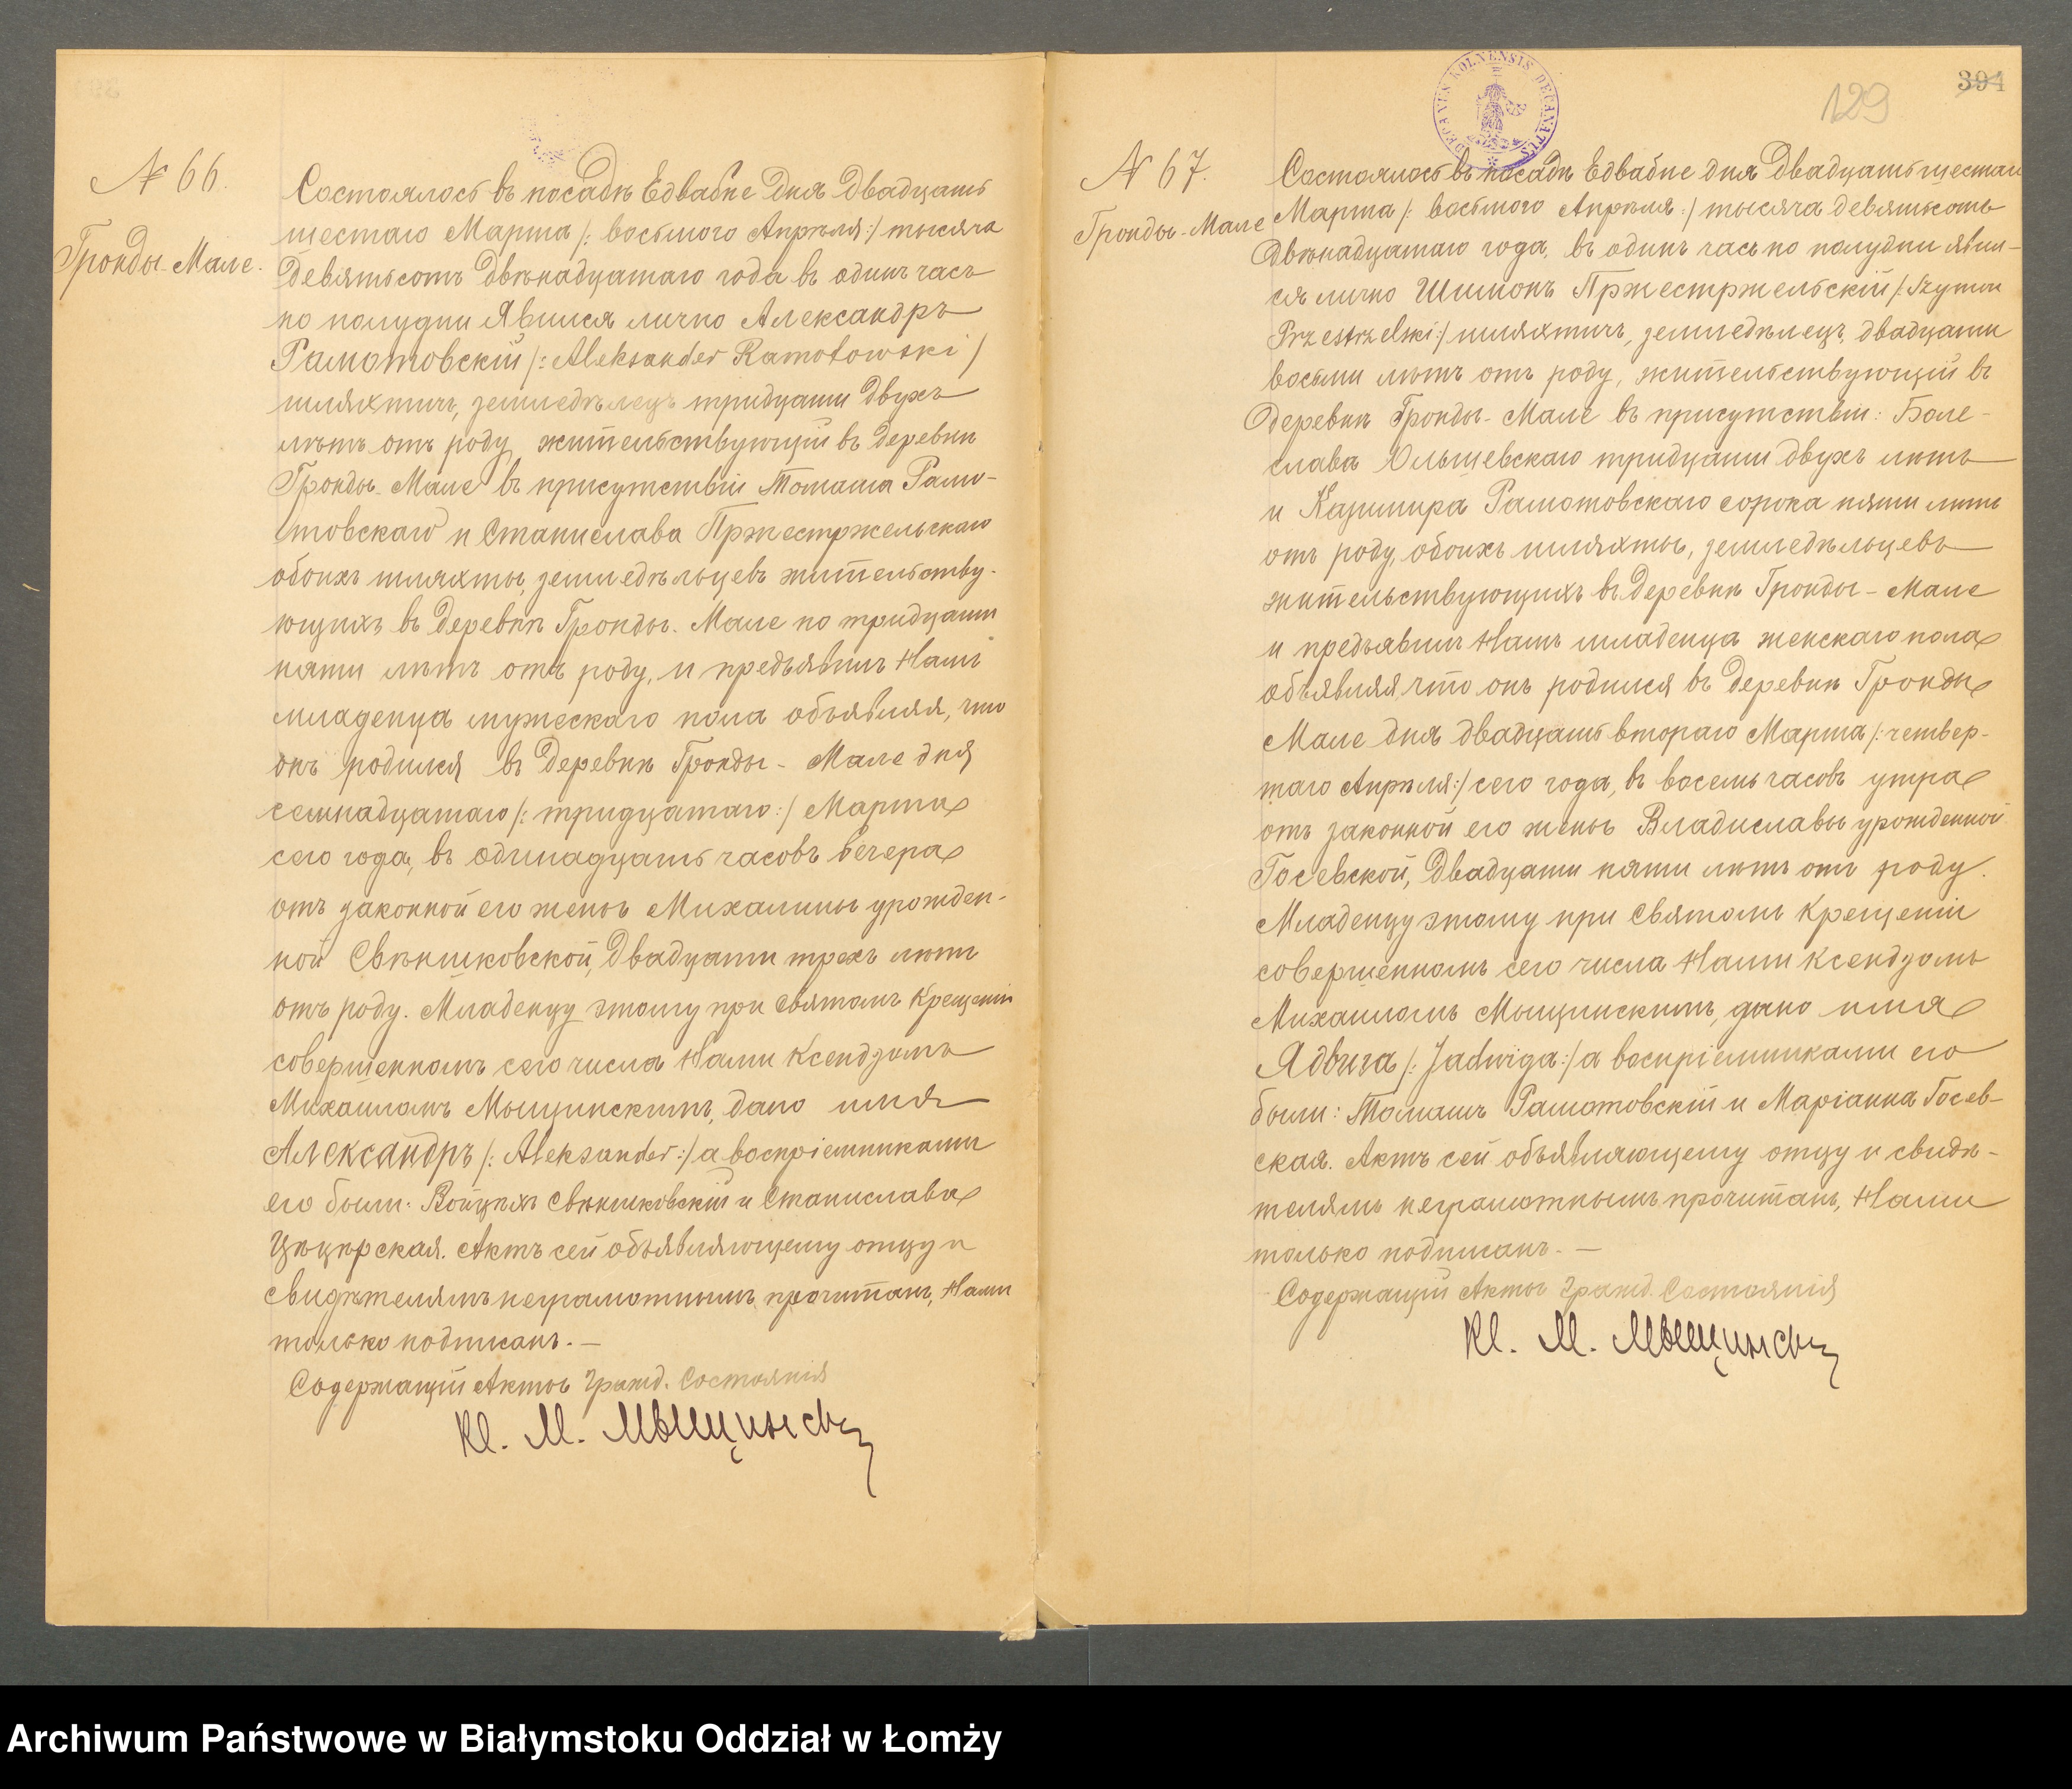 № 66.
Гронды-Мале.
Состоялось въ посадѣ Едвабне дня двадцать
шестаго Марта /: восьмого Апрѣля :/ тысяча
девятьсотъ двѣнадцатаго года въ одинъ часъ
по полудни Явился лично Александръ
Рамотовскій /: Aleksander Ramotowski /
шляхтичъ, земледѣлецъ тридцати двухъ
лѣтъ отъ роду жительствующій въ деревнѣ
Гронды-Мале въ присутствіи Томаша Рамо-
товскаго и Станислава Пржестржельскаго
обоихъ шляхты, земледѣльцевъ жительству-
ющихъ въ деревнѣ Гронды-Мале по тридцати
пяти лѣтъ отъ роду, и предъявилъ Намъ
младенца мужескаго пола объявляя, что
онъ родился въ деревнѣ Гронды-Мале дня
семнадцатаго /: тридцатаго :/ Марта
сего года, въ одинадцать часовъ вечера
отъ законной его жены Михалины урожден-
ной Свѣншковской, двадцати трехъ лѣтъ
отъ роду. Младенцу этому при Святомъ Крещеніи
совершенномъ сего числа Нами Ксендзомъ
Михаиломъ Мыщинскимъ, дано имя
Александръ /: Aleksander :/ а воспріемниками
его были: Войцѣхъ Свѣншковскій и Станислава
Цѣцѣрская. Актъ сей объявляющему отцу и
свидѣтелямъ неграмотнымъ прочитанъ, Нами
только подписанъ. —
Содержащій Акты Гражд. Состоянія
Кс. М. Мыщинскі
394
129
DECANUS KOLNENSIS DECANATUS
№ 67.
Гронды-Мале
Состоялось въ посадѣ Едвабне дня двадцать шестаго
Марта /: восьмого Апрѣля :/ тысяча девятьсотъ
двѣнадцатаго года, въ одинъ часъ по полудни явил-
ся лично Шимонъ Пржестржельскій /: Szymon
Przestrzelski :/ шляхтичъ, земледѣлецъ, двадцати
восьми лѣтъ отъ роду, жительствующій въ
деревнѣ Гронды-Мале въ присутствіи: Боле-
слава Ольшевскаго тридцати двухъ лѣтъ
и Казимира Рамотовскаго сорока пяти лѣтъ
отъ роду, обоихъ шляхты, земледѣльцевъ
жительствующихъ въ деревнѣ Гронды-Мале
и предъявилъ Намъ младенца женскаго пола
объявляя что онъ родился въ деревнѣ Гронды
Мале дня двадцать втораго Марта /: четвер-
таго Апрѣля :/ сего года, въ восемь часовъ утра
отъ законной его жены Владиславы урожденной
Госевской, двадцати пяти лѣтъ отъ роду.
Младенцу этому при Святомъ Крещеніи
совершенномъ сего числа Нами Ксендзомъ
Михаиломъ Мыщинскимъ, дано имя
Ядвига /: Jadwiga :/ а воспріемниками его
были: Томашъ Рамотовскій и Маріанна Госев-
ская. Актъ сей объявляющему отцу и свидѣ-
телямъ неграмотнымъ прочитанъ, Нами
только подписанъ. —
Содержащій Акты Гражд. Состоянія
Кс. М. Мыщинскі
Archiwum Państwowe w Białymstoku Oddział w Łomży